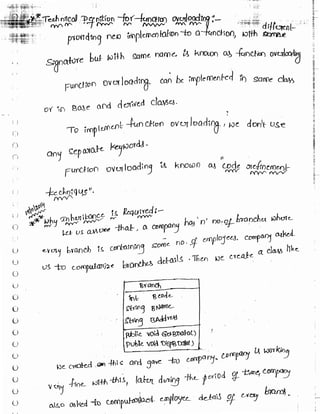 * Technical Definition for function overloading :-
providing new implementation to a function, with different
Signature but with same name is known as function overloading
Function overloading can be implemented in same class
or in Base and derived classes.
To implement function overloading, we don't use
any seperate keywords.
Function overloading is known as code
technique".
** Why Inheritance Is Required :-
Let us assume that, a company has 'n' no. of branches where
every branch is containing some no. of employees. company asked
us to branches details. Then we create a class like
Branch
int Bcode.
String BName.
String BAddress
public void GetBData()
public void DispBData()
we created this and gave to company, company is working
very fine with this, later during the period of time, company
also asked to employee details of every branch.